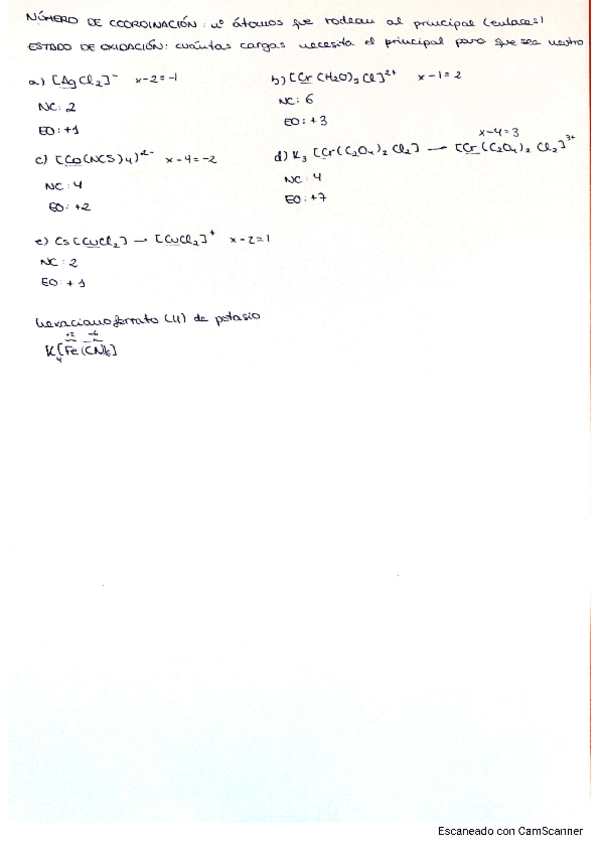 NÚMERO DE COORDINACIÓN: nº átomos que rodean al principal (enlaces!)
ESTADO DE OXIDACIÓN: cuántas cargas necesita el principal para que sea neutro
a) [AgCl2]- x-2=-1
NC: 2
EO: +1
b) [Cr(H2O)5Cl]2+ x-1=2
NC: 6
EO: +3
c) [Co(NCS)4]2- x-4=-2
NC: 4
EO: +2
d) K3 [Cr(C2O4)2Cl2] → [Cr(C2O4)2Cl2]3+
x-4=3
NC: 4
EO: +7
e) Cs[CuCl2] → [CuCl2]+ x-2=1
NC: 2
EO: +1
hexacianoferrato (II) de potasio
+2 -6
K4[Fe(CN)6]
Escaneado con CamScanner